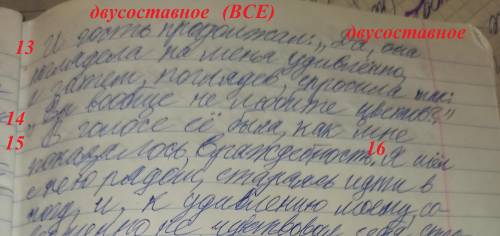 двусоставное (ВСЕ)
двусоставное
13 И гость продолжал: „Да, она
поглядела на меня удивлённо,
а затем, поглядев, спросила
14 „Вы вообще не любите цветов?"
15 В голосе её была, как мне
показалось враждебность. 16 Я шёл
с нею рядом, стараясь идти в
ногу, и, к удивлению моему, со
не чувствовал себя